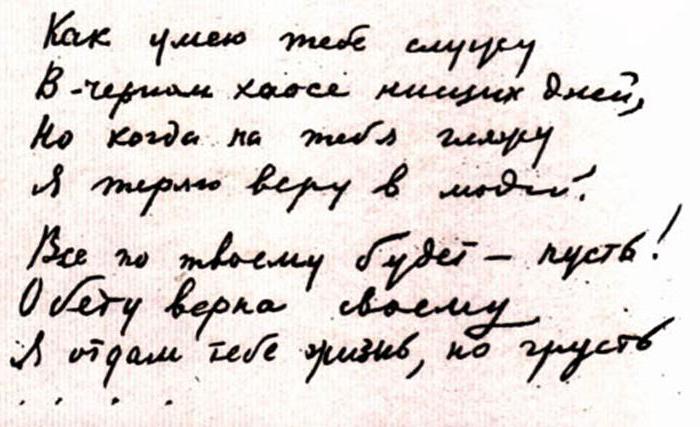 Как умею тебе служу
В черном хаосе нищих дней,
Но когда на тебя гляжу
Я теряю веру в людей.
Все по твоему будет – пусть!
Обету верна своему
Я отдам тебе жизнь, но грусть
. . . .